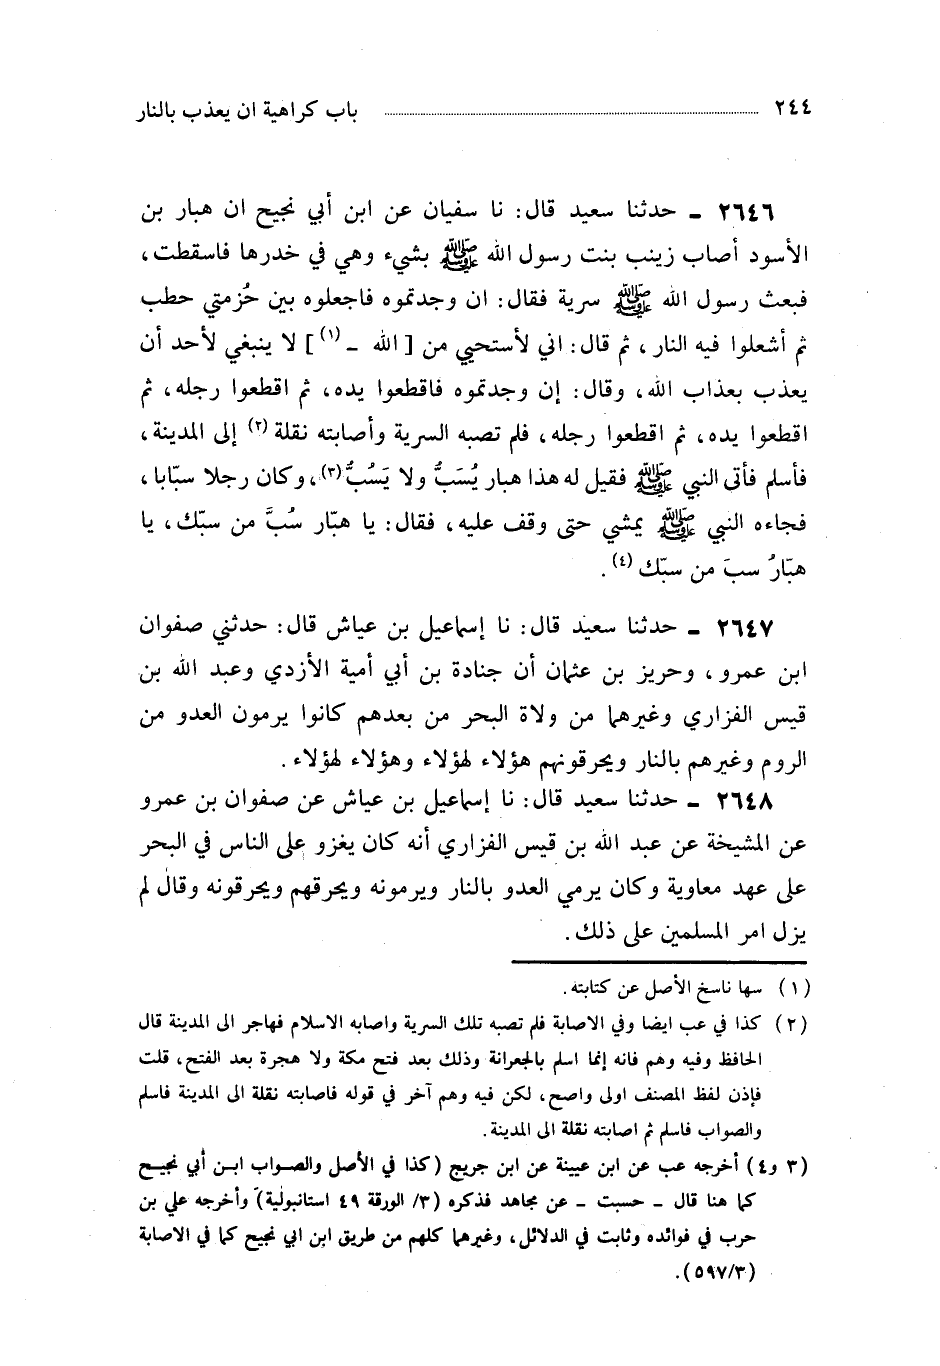 ٢٤٤ باب كراهية ان يعذب بالنار
٢٦٤٦ ـ حدثنا سعيد قال: نا سفيان عن ابن أبي نجيح ان هبار بن
الأسود أصاب زينب بنت رسول الله ﷺ بشيء وهي في خدرها فاسقطت،
فبعث رسول الله ﷺ سرية فقال: ان وجدتموه فاجعلوه بين حُزمتي حطب
ثم أشعلوا فيه النار، ثم قال: اني لأستحيي من [ الله ـ (١) ] لا ينبغي لأحد أن
يعذب بعذاب الله، وقال: إن وجدتموه فاقطعوا يده، ثم اقطعوا رجله، ثم
اقطعوا يده، ثم اقطعوا رجله، فلم تصبه السرية وأصابته نقلة (٢) إلى المدينة،
فأسلم فأتى النبي ﷺ فقيل له هذا هبار يُسَبُّ ولا يَسُبُّ (٣)، وكان رجلا سبّابا،
فجاءه النبي ﷺ يمشي حتى وقف عليه، فقال: يا هبّار سُبَّ من سبّك، يا
هبّارُ سبَ من سبّك (٤).
٢٦٤٧ ـ حدثنا سعيد قال: نا إسماعيل بن عياش قال: حدثني صفوان
ابن عمرو، وحريز بن عثمان أن جنادة بن أبي أمية الأزدي وعبد الله بن
قيس الفزاري وغيرهما من ولاة البحر من بعدهم كانوا يرمون العدو من
الروم وغيرهم بالنار ويحرقونهم هؤلاء لهؤلاء وهؤلاء لهؤلاء.
٢٦٤٨ ـ حدثنا سعيد قال: نا إسماعيل بن عياش عن صفوان بن عمرو
عن المشيخة عن عبد الله بن قيس الفزاري أنه كان يغزو على الناس في البحر
على عهد معاوية وكان يرمي العدو بالنار ويرمونه ويحرقهم ويحرقونه وقال لم
يزل امر المسلمين على ذلك.
(١) سها ناسخ الأصل عن كتابته.
(٢) كذا في عب ايضا وفي الاصابة فلم تصبه تلك السرية واصابه الاسلام فهاجر الى المدينة قال
الحافظ وفيه وهم فانه إنما اسلم بالجعرانة وذلك بعد فتح مكة ولا هجرة بعد الفتح، قلت
فإذن لفظ المصنف اولى واصح، لكن فيه وهم آخر في قوله فاصابته نقلة الى المدينة فاسلم
والصواب فاسلم ثم اصابته نقلة الى المدينة.
(٣ و٤) أخرجه عب عن ابن عيينة عن ابن جريج (كذا في الأصل والصواب ابن أبي نجيح
كما هنا قال ـ حسبت ـ عن مجاهد فذكره (٣/ الورقة ٤٩ استانبولية) وأخرجه علي بن
حرب في فوائده وثابت في الدلائل، وغيرهما كلهم من طريق ابن ابي نجيح كما في الاصابة
(٥٩٧/٣).